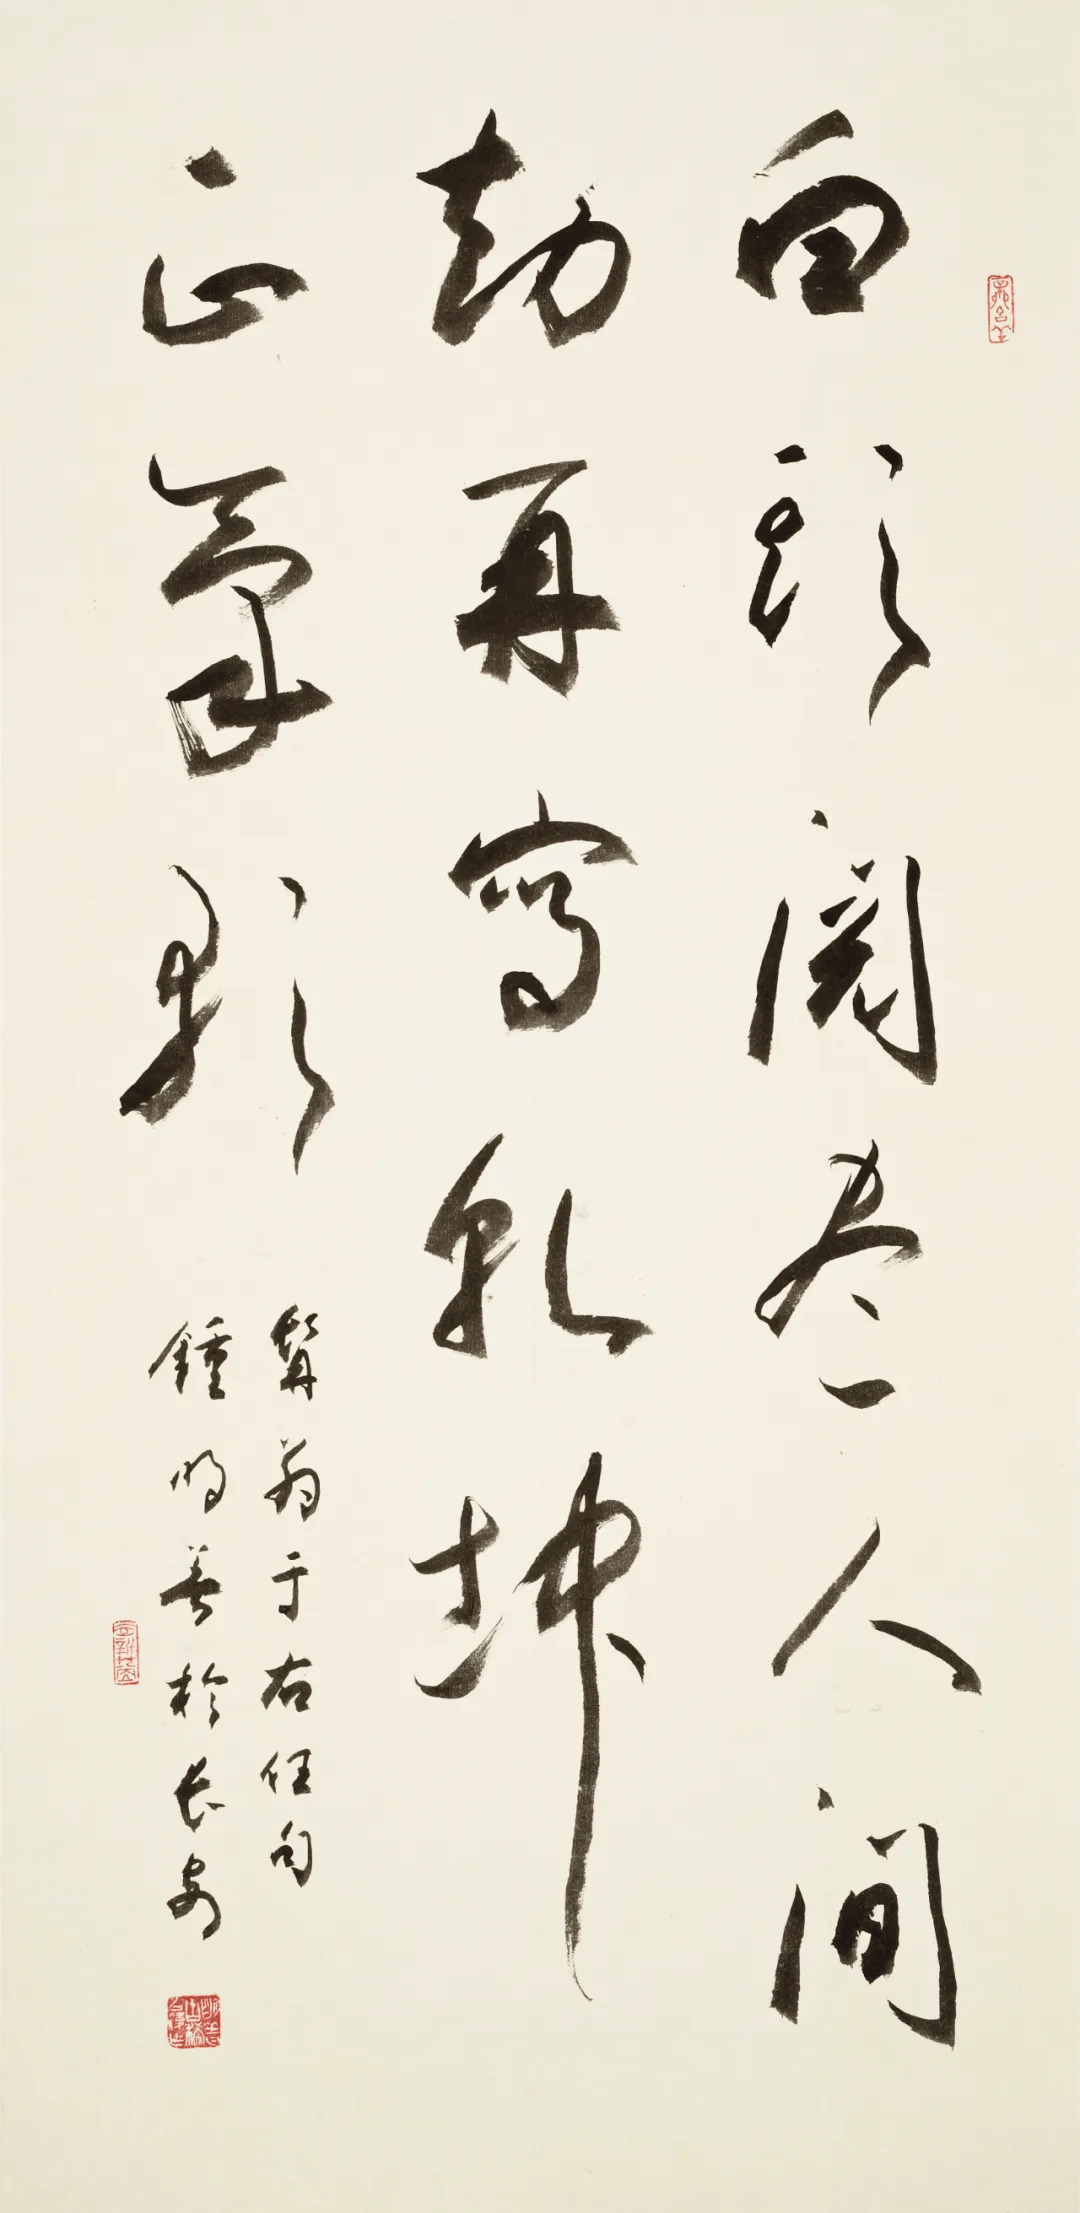 白頭閱盡人間
劫再寫乾坤
正氣歌
髯翁于右任句
鍾明善於长安